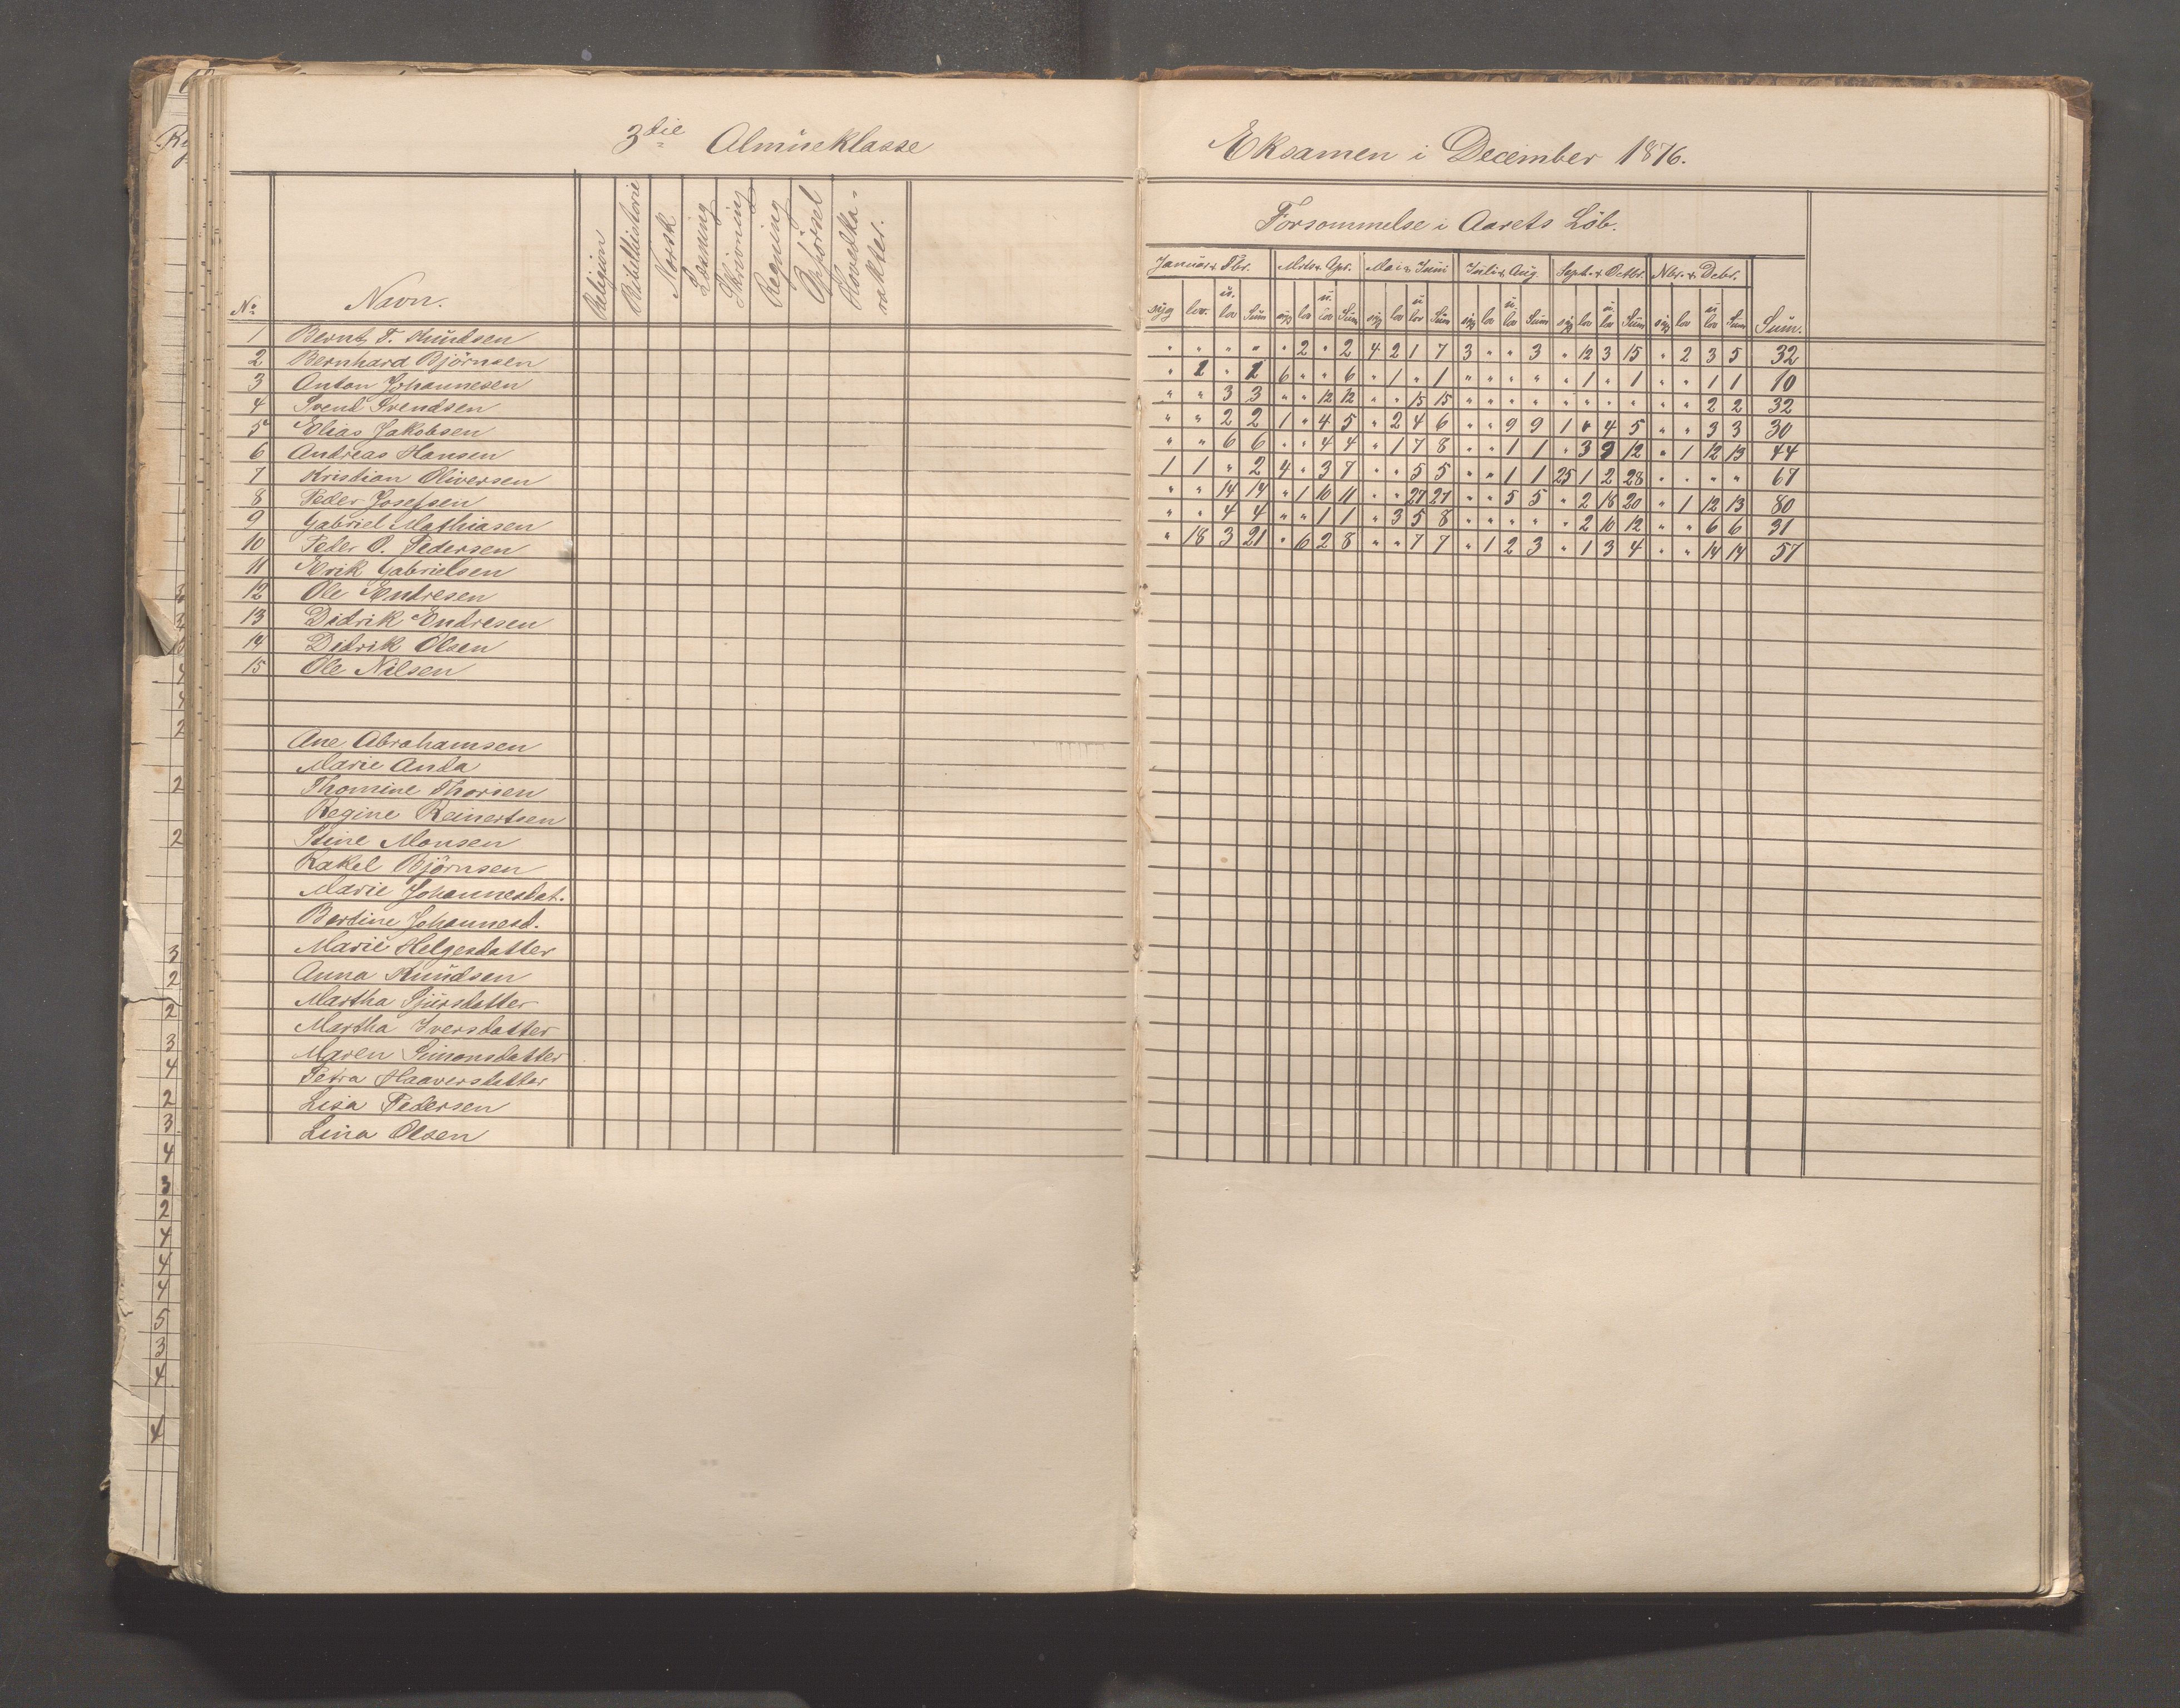 3die Almueklasse
Eksamen i December 1876.
Forsømmelse i Aarets Løb.
No Navn. Religion Bibelhistorie Norsk Læsning Skrivning Regning Opførsel Hovedka- rakter.
Januar & Fbr. Mrts & Apr. Mai & Juni Juli & Aug. Sept. & Octbr. Nbr. & Debr. Sum.
syg lov. u. lov Sum syg lov u. lov Sum syg lov u lov Sum syg lov u lov Sum syg lov u lov Sum syg lov u lov Sum
1 Bernt T. Knudsen
2 Bernhard Bjørnsen
3 Anton Johannesen
4 Svend Svendsen
5 Elias Jakobsen
6 Andreas Hansen
7 Kristian Oliversen
8 Peder Josefsen
9 Gabriel Mathiasen
10 Peder O. Pedersen
11 Erik Gabrielsen
12 Ole Endresen
13 Didrik Endresen
14 Didrik Olsen
15 Ole Nilsen
Ane Abrahamsen
Marie Anda
Thomine Thorsen
Regine Reinertsen
Stine Monsen
Rakel Bjørnsen
Marie Johannesdat.
Bertine Johannesd.
Marie Helgesdatter
Anna Knudsen
Martha Sjursdatter
Martha Iversdatter
Maren Simonsdatter
Petra Haaversdatter
Lisa Pedersen
Lina Olsen
" " " " " 2 " 2 4 2 1 7 3 " " 3 " 12 3 15 " 2 3 5 32
" 1 " 1 6 " " 6 " 1 " 1 " " " " " 1 " 1 " " 1 1 10
" " 3 3 " " 12 12 " " 15 15 " " " " " " " " " " 2 2 32
" " 2 2 1 " 4 5 " 2 4 6 " " 9 9 1 " 4 5 " " 3 3 30
" " 6 6 " " 4 4 " 1 7 8 " " 1 1 " 3 9 12 " 1 12 13 44
1 1 " 2 4 " 3 7 " " 5 5 " " 1 1 25 1 2 28 " " " " 67
" " 14 14 " 1 10 11 " " 27 27 " " 5 5 " 2 18 20 " 1 12 13 80
" " 4 4 " " 1 1 " 3 5 8 " " " " " 2 10 12 " " 6 6 31
" 18 3 21 " 6 2 8 " " 7 7 " 1 2 3 " 1 3 4 " " 14 14 57